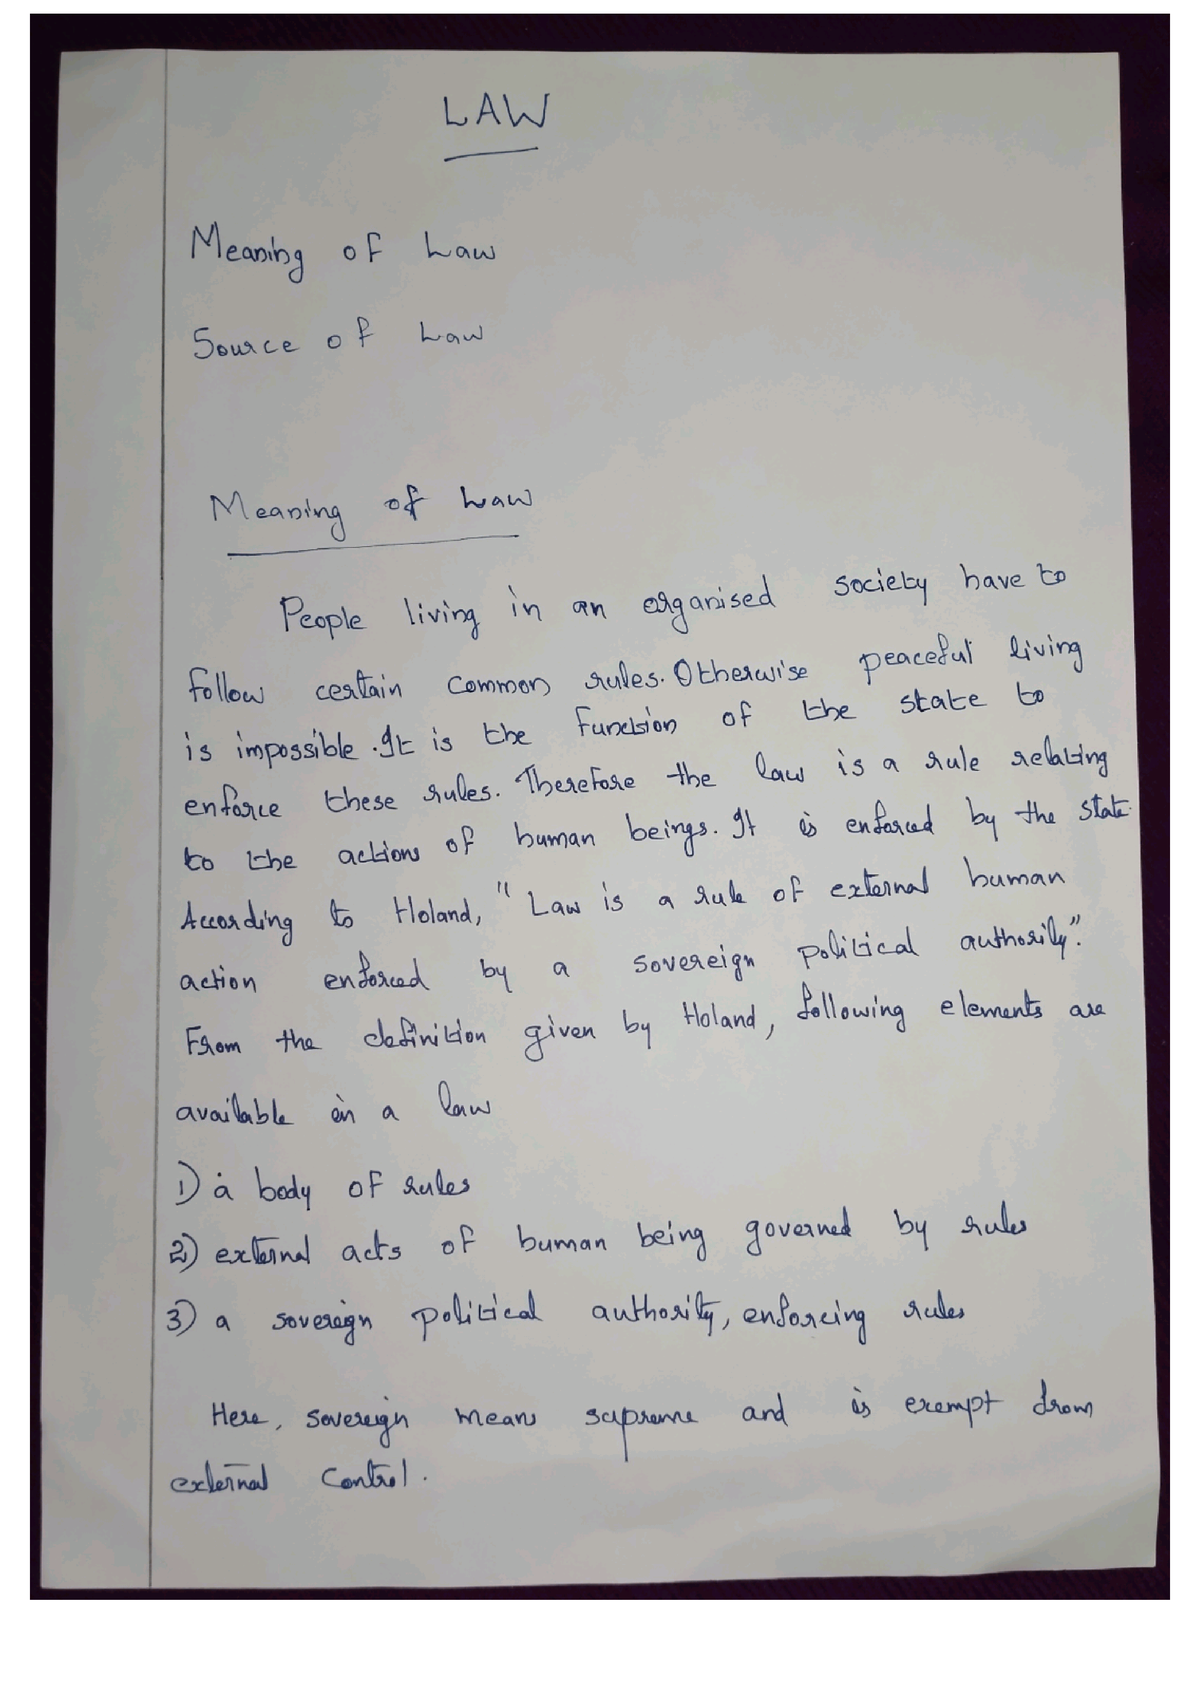 LAW
Meaning of Law
Source of Law
Meaning of Law
People living in an organised society have to
follow certain common rules. Otherwise peaceful living
is impossible. It is the function of the state to
enforce these rules. Therefore the law is a rule relating
to the actions of human beings. It is enforced by the state.
According to Holand, "Law is a rule of external human
action enforced by a sovereign political authority".
From the definition given by Holand, following elements are
available in a law
1) a body of rules
2) external acts of human being governed by rules
3) a sovereign political authority, enforcing rules
Here, sovereign means supreme and is exempt from
external control.